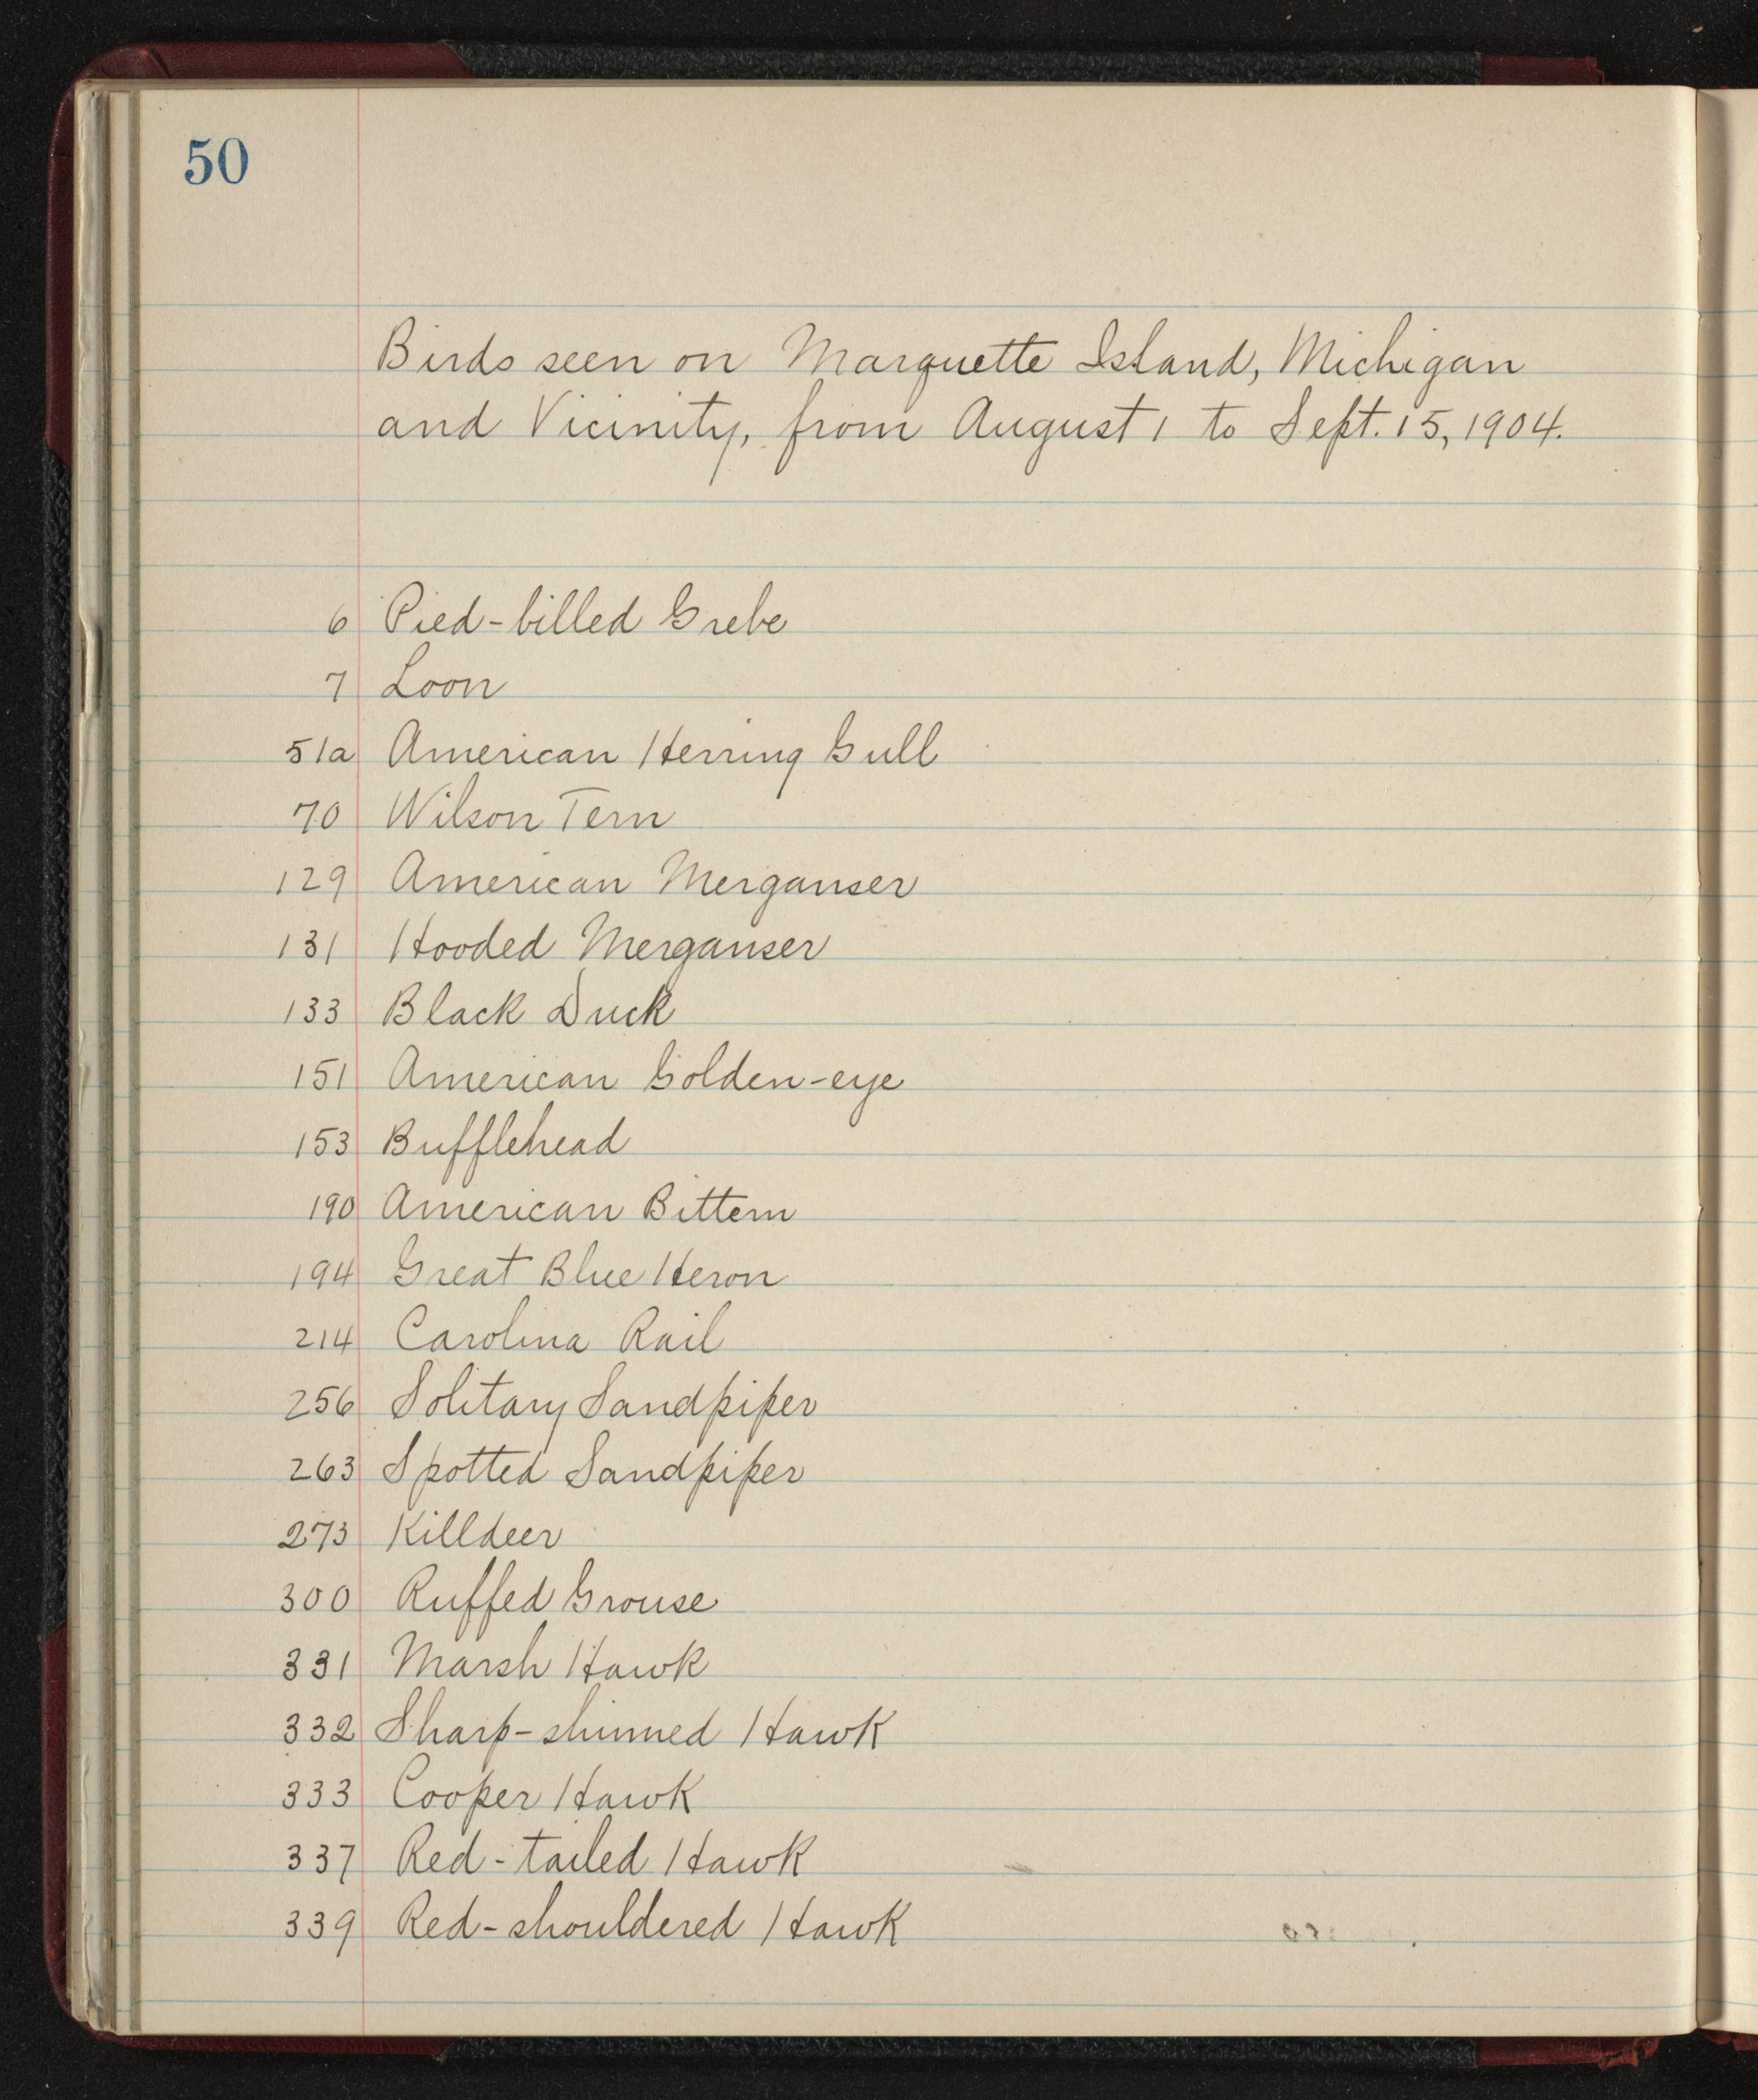 50
Birds seen on Marquette Island, Michigan
and Vicinity, from August 1 to Sept. 15, 1904.
6 Pied-billed Grebe
7 Loon
51a American Herring Gull
70 Wilson Tern
129 American Merganser
131 Hooded Merganser
133 Black Duck
151 American Golden-eye
153 Bufflehead
190 American Bittern
194 Great Blue Heron
214 Carolina Rail
256 Solitary Sandpiper
263 Spotted Sandpiper
273 Killdeer
300 Ruffed Grouse
331 Marsh Hawk
332 Sharp-shinned Hawk
333 Cooper Hawk
337 Red-tailed Hawk
339 Red-shouldered Hawk